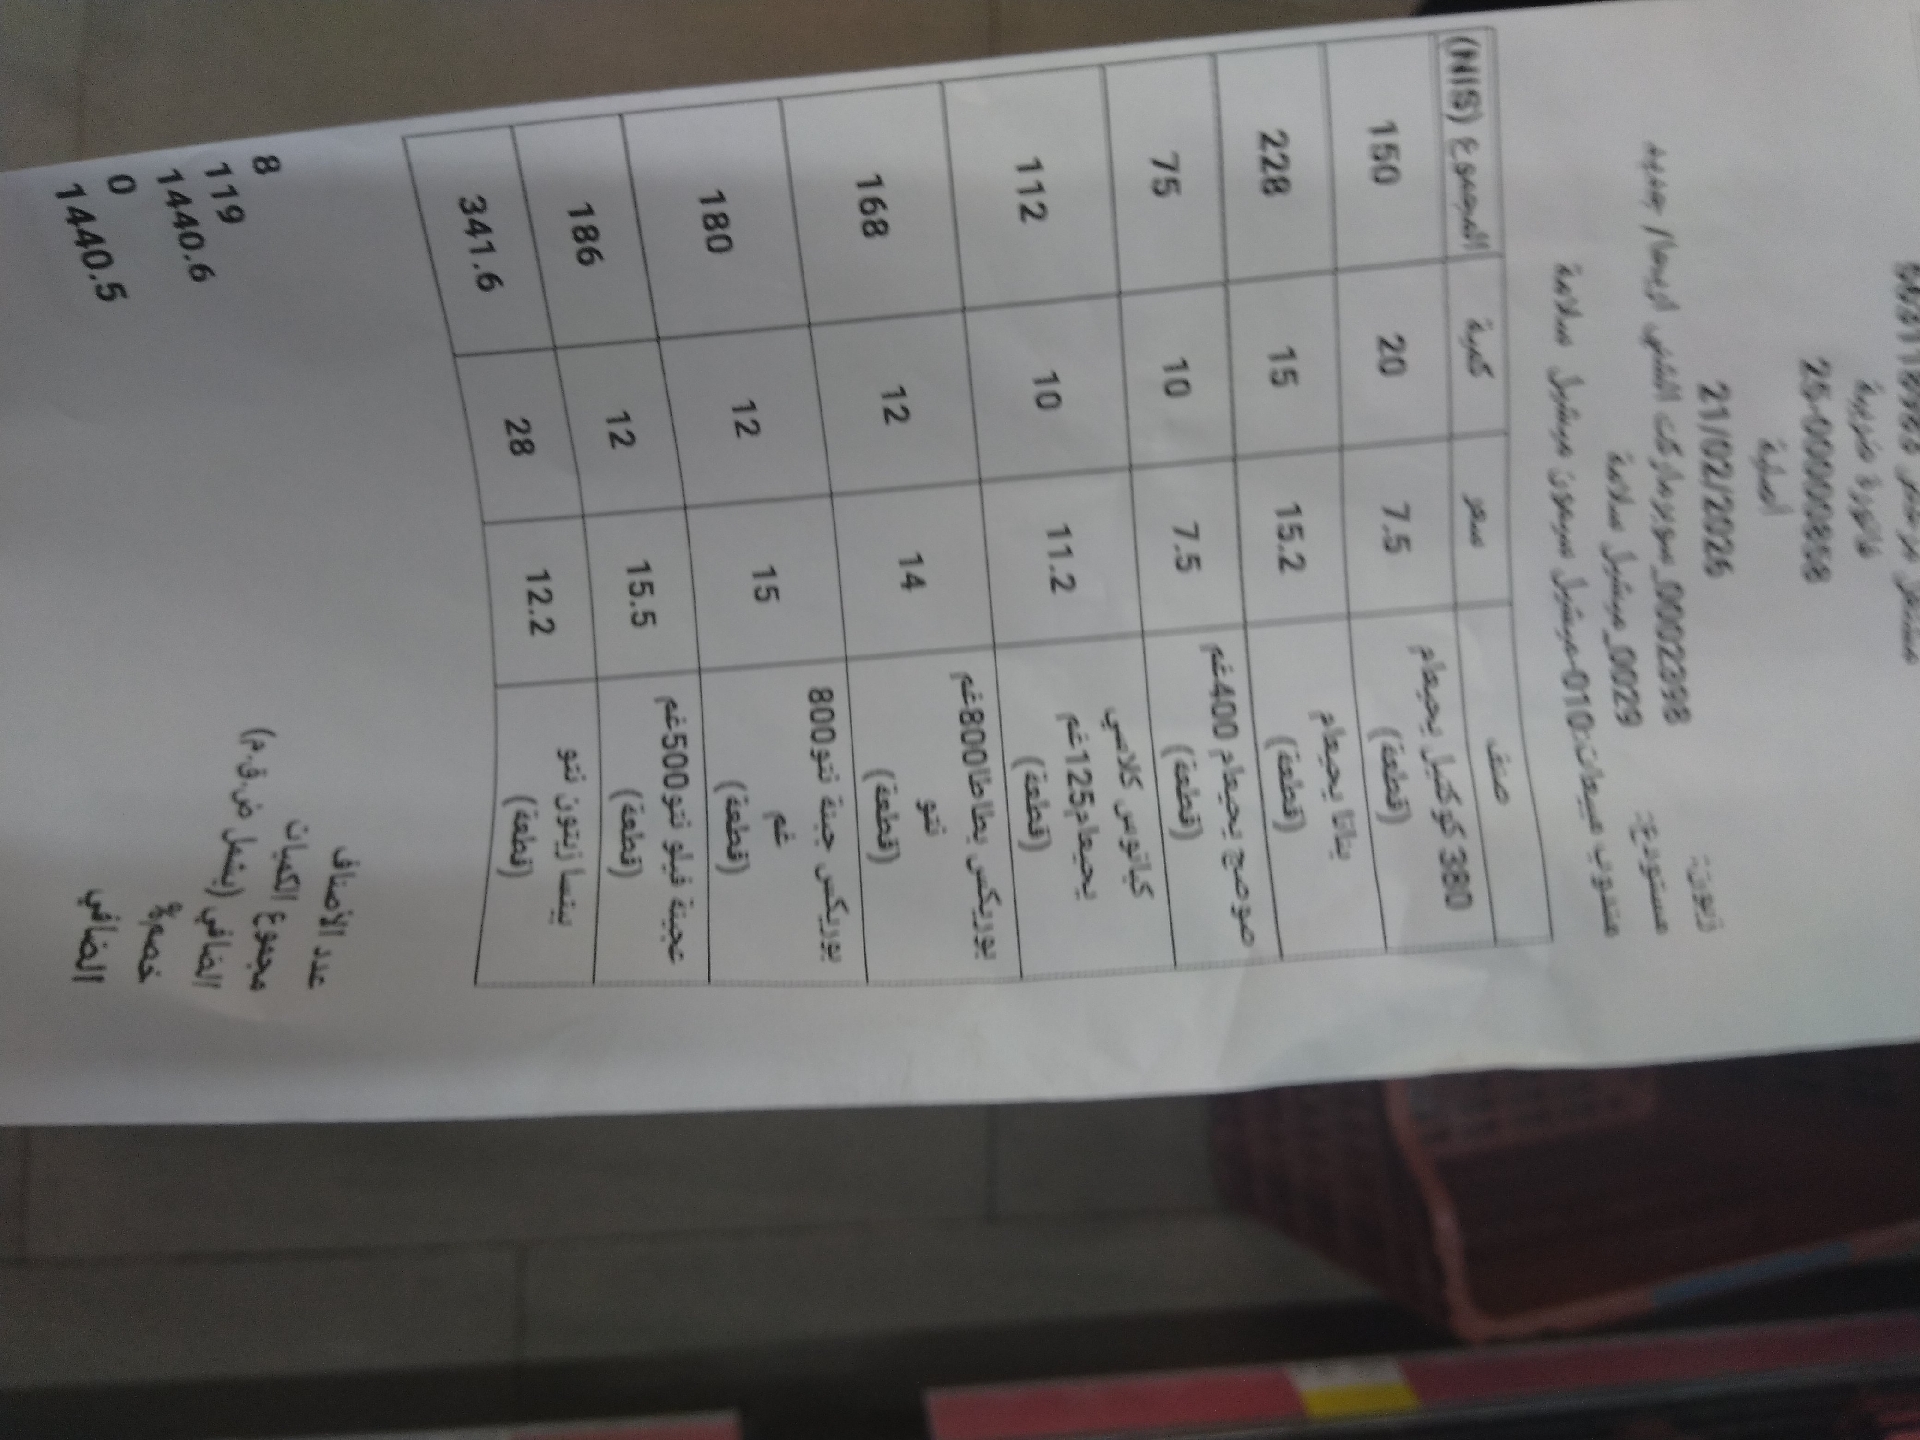 فاتورة ضريبية
25-00000858
أصلية
21/02/2026
زبون: 0002398_سوبرماركت الشني الريحا/ جديد
مستودع: 0029_ميشيل سلامة
مندوب مبيعات: 010-ميشيل سيمون ميشيل سلامة
صنف سعر كمية المجموع (NIS)
380 كوكتيل يحيعام (قطعة) 7.5 20 150
يحيعام (قطعة) 15.2 15 228
يحيعام 400غم (قطعة) 7.5 10 75
كلاسي يحيعام125غم (قطعة) 11.2 10 112
بوريكس بطاطا800غم نتو (قطعة) 14 12 168
بوريكس جبنة نتو800 غم (قطعة) 15 12 180
عجينة فيلو نتو500غم (قطعة) 15.5 12 186
بيتسا زيتون نتو (قطعة) 12.2 28 341.6
عدد الأصناف 8
مجموع الكميات 119
الصافي (يشمل ض.ق.م) 1440.6
خصم% 0
الصافي 1440.5